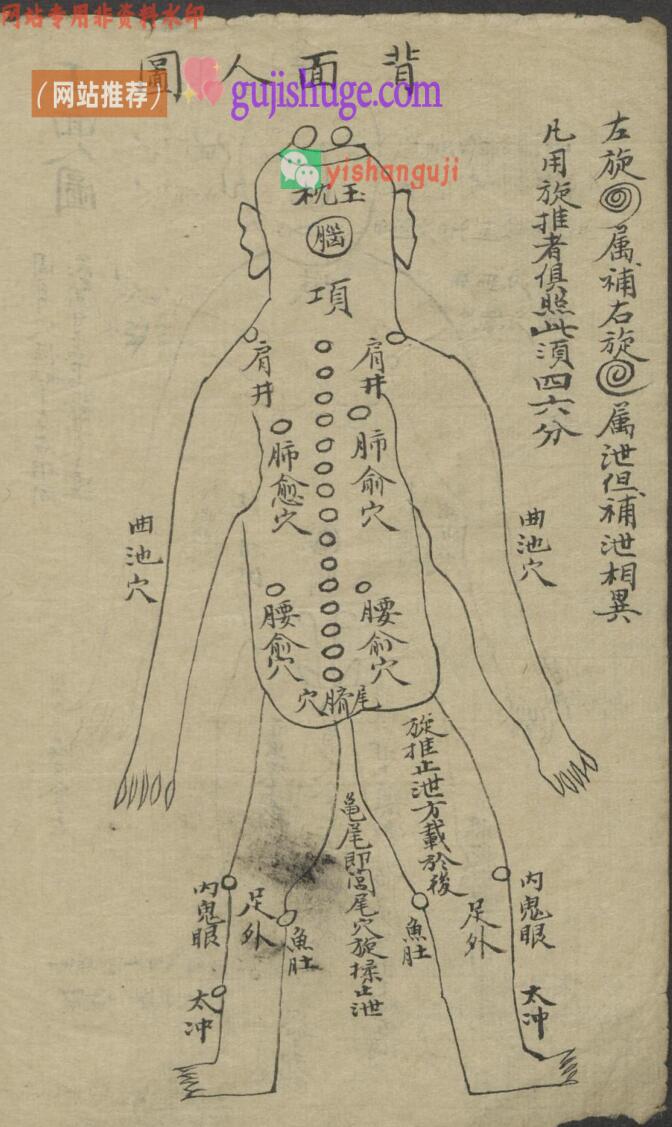 网站专用非资料水印
背面人圖
（网站推荐）
gujishuge.com
yishanguji
左旋 属補右旋 属泄但補泄相異
凡用旋推者俱照此須四六分
玉枕
腦
項
肩井
肩井
肺俞穴
肺愈穴
曲池穴
曲池穴
腰俞穴
腰俞穴
尾臍穴
旋推止泄方載於後
龟尾即閭尾穴旋揉止泄
内鬼眼
足外
魚肚
魚肚
足外
内鬼眼
太冲
太冲